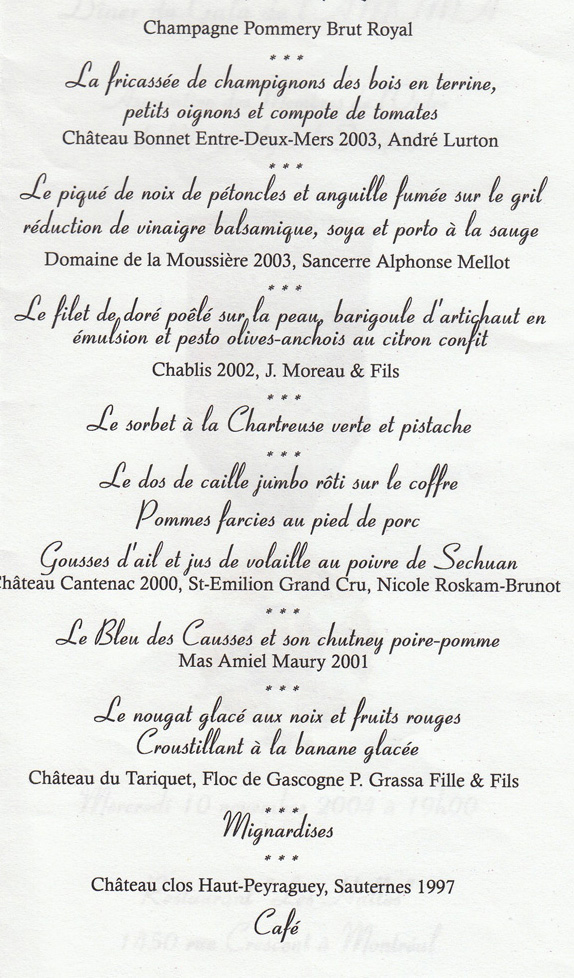 Champagne Pommery Brut Royal
* * *
La fricassée de champignons des bois en terrine,
petits oignons et compote de tomates
Château Bonnet Entre-Deux-Mers 2003, André Lurton
* * *
Le piqué de noix de pétoncles et anguille fumée sur le gril
réduction de vinaigre balsamique, soya et porto à la sauge
Domaine de la Moussière 2003, Sancerre Alphonse Mellot
* * *
Le filet de doré poêlé sur la peau, barigoule d'artichaut en
émulsion et pesto olives-anchois au citron confit
Chablis 2002, J. Moreau & Fils
* * *
Le sorbet à la Chartreuse verte et pistache
* * *
Le dos de caille jumbo rôti sur le coffre
Pommes farcies au pied de porc
Gousses d'ail et jus de volaille au poivre de Sechuan
hâteau Cantenac 2000, St-Emilion Grand Cru, Nicole Roskam-Brunot
* * *
Le Bleu des Causses et son chutney poire-pomme
Mas Amiel Maury 2001
* * *
Le nougat glacé aux noix et fruits rouges
Croustillant à la banane glacée
Château du Tariquet, Floc de Gascogne P. Grassa Fille & Fils
* * *
Mignardises
* * *
Château clos Haut-Peyraguey, Sauternes 1997
Café